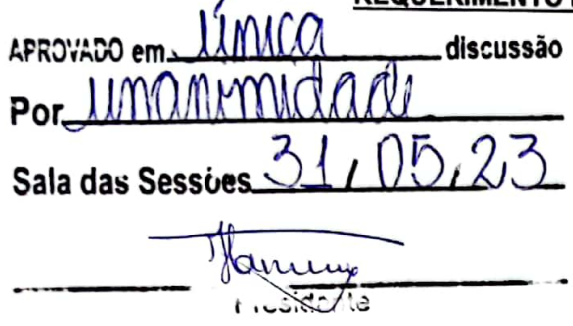 REQUERIMENTO
APROVADO em única discussão
Por unanimidade
Sala das Sessões 31/05/23
Presidente